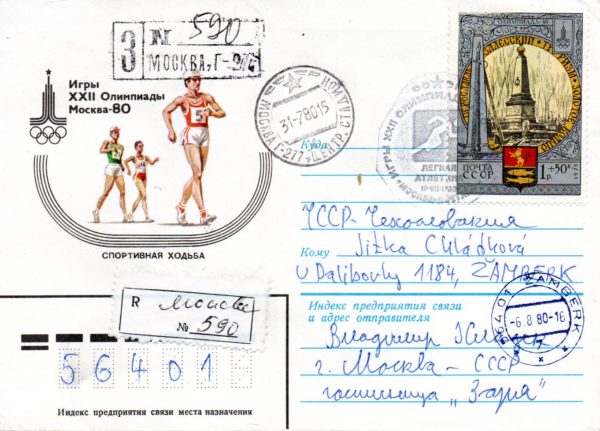 З N 590
МОСКВА, Г-
Игры
XXII Олимпиады
Москва-80
5
СПОРТИВНАЯ ХОДЬБА
МОСКВА Г-277 ЦЕНТР. СТАДИОН
31-7 80 15
ИГРЫ XXII ОЛИМПИАДЫ
ЛЕГКАЯ
АТЛЕТИКА
ПОЧТА
СССР
1 +50к.
р.
Куда
ЧССР-Чехословакия
Кому Jitka Chládková
U Dalibovky 1184, ŽAMBERK
Индекс предприятия связи
и адрес отправителя
Владимир
г. Москва - СССР
гостиница „Заря"
564 01 ŽAMBERK
-6.8 80-16
R Москва
№ 590
56401
Индекс предприятия связи места назначения